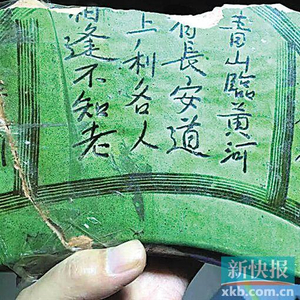 青山臨黄河
有長安道
上利各人
相逢不知老
新快报
xkb.com.cn